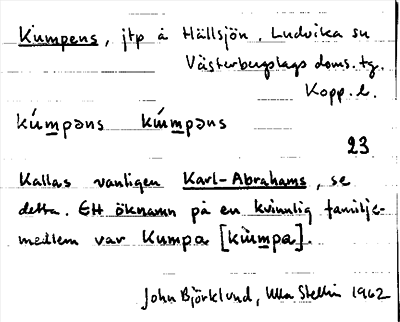 Kumpens, jtp å Hällsjön. Ludvika sn
Västerbergslags doms. tg.
Kopp. l.
kúmpəns kùmpəns
23
Kallas vanligen Karl-Abrahams, se
detta. Ett öknamn på en kvinnlig familje-
medlem var Kumpa [kùmpa].
John Björklund, Ulla Stellin 1962